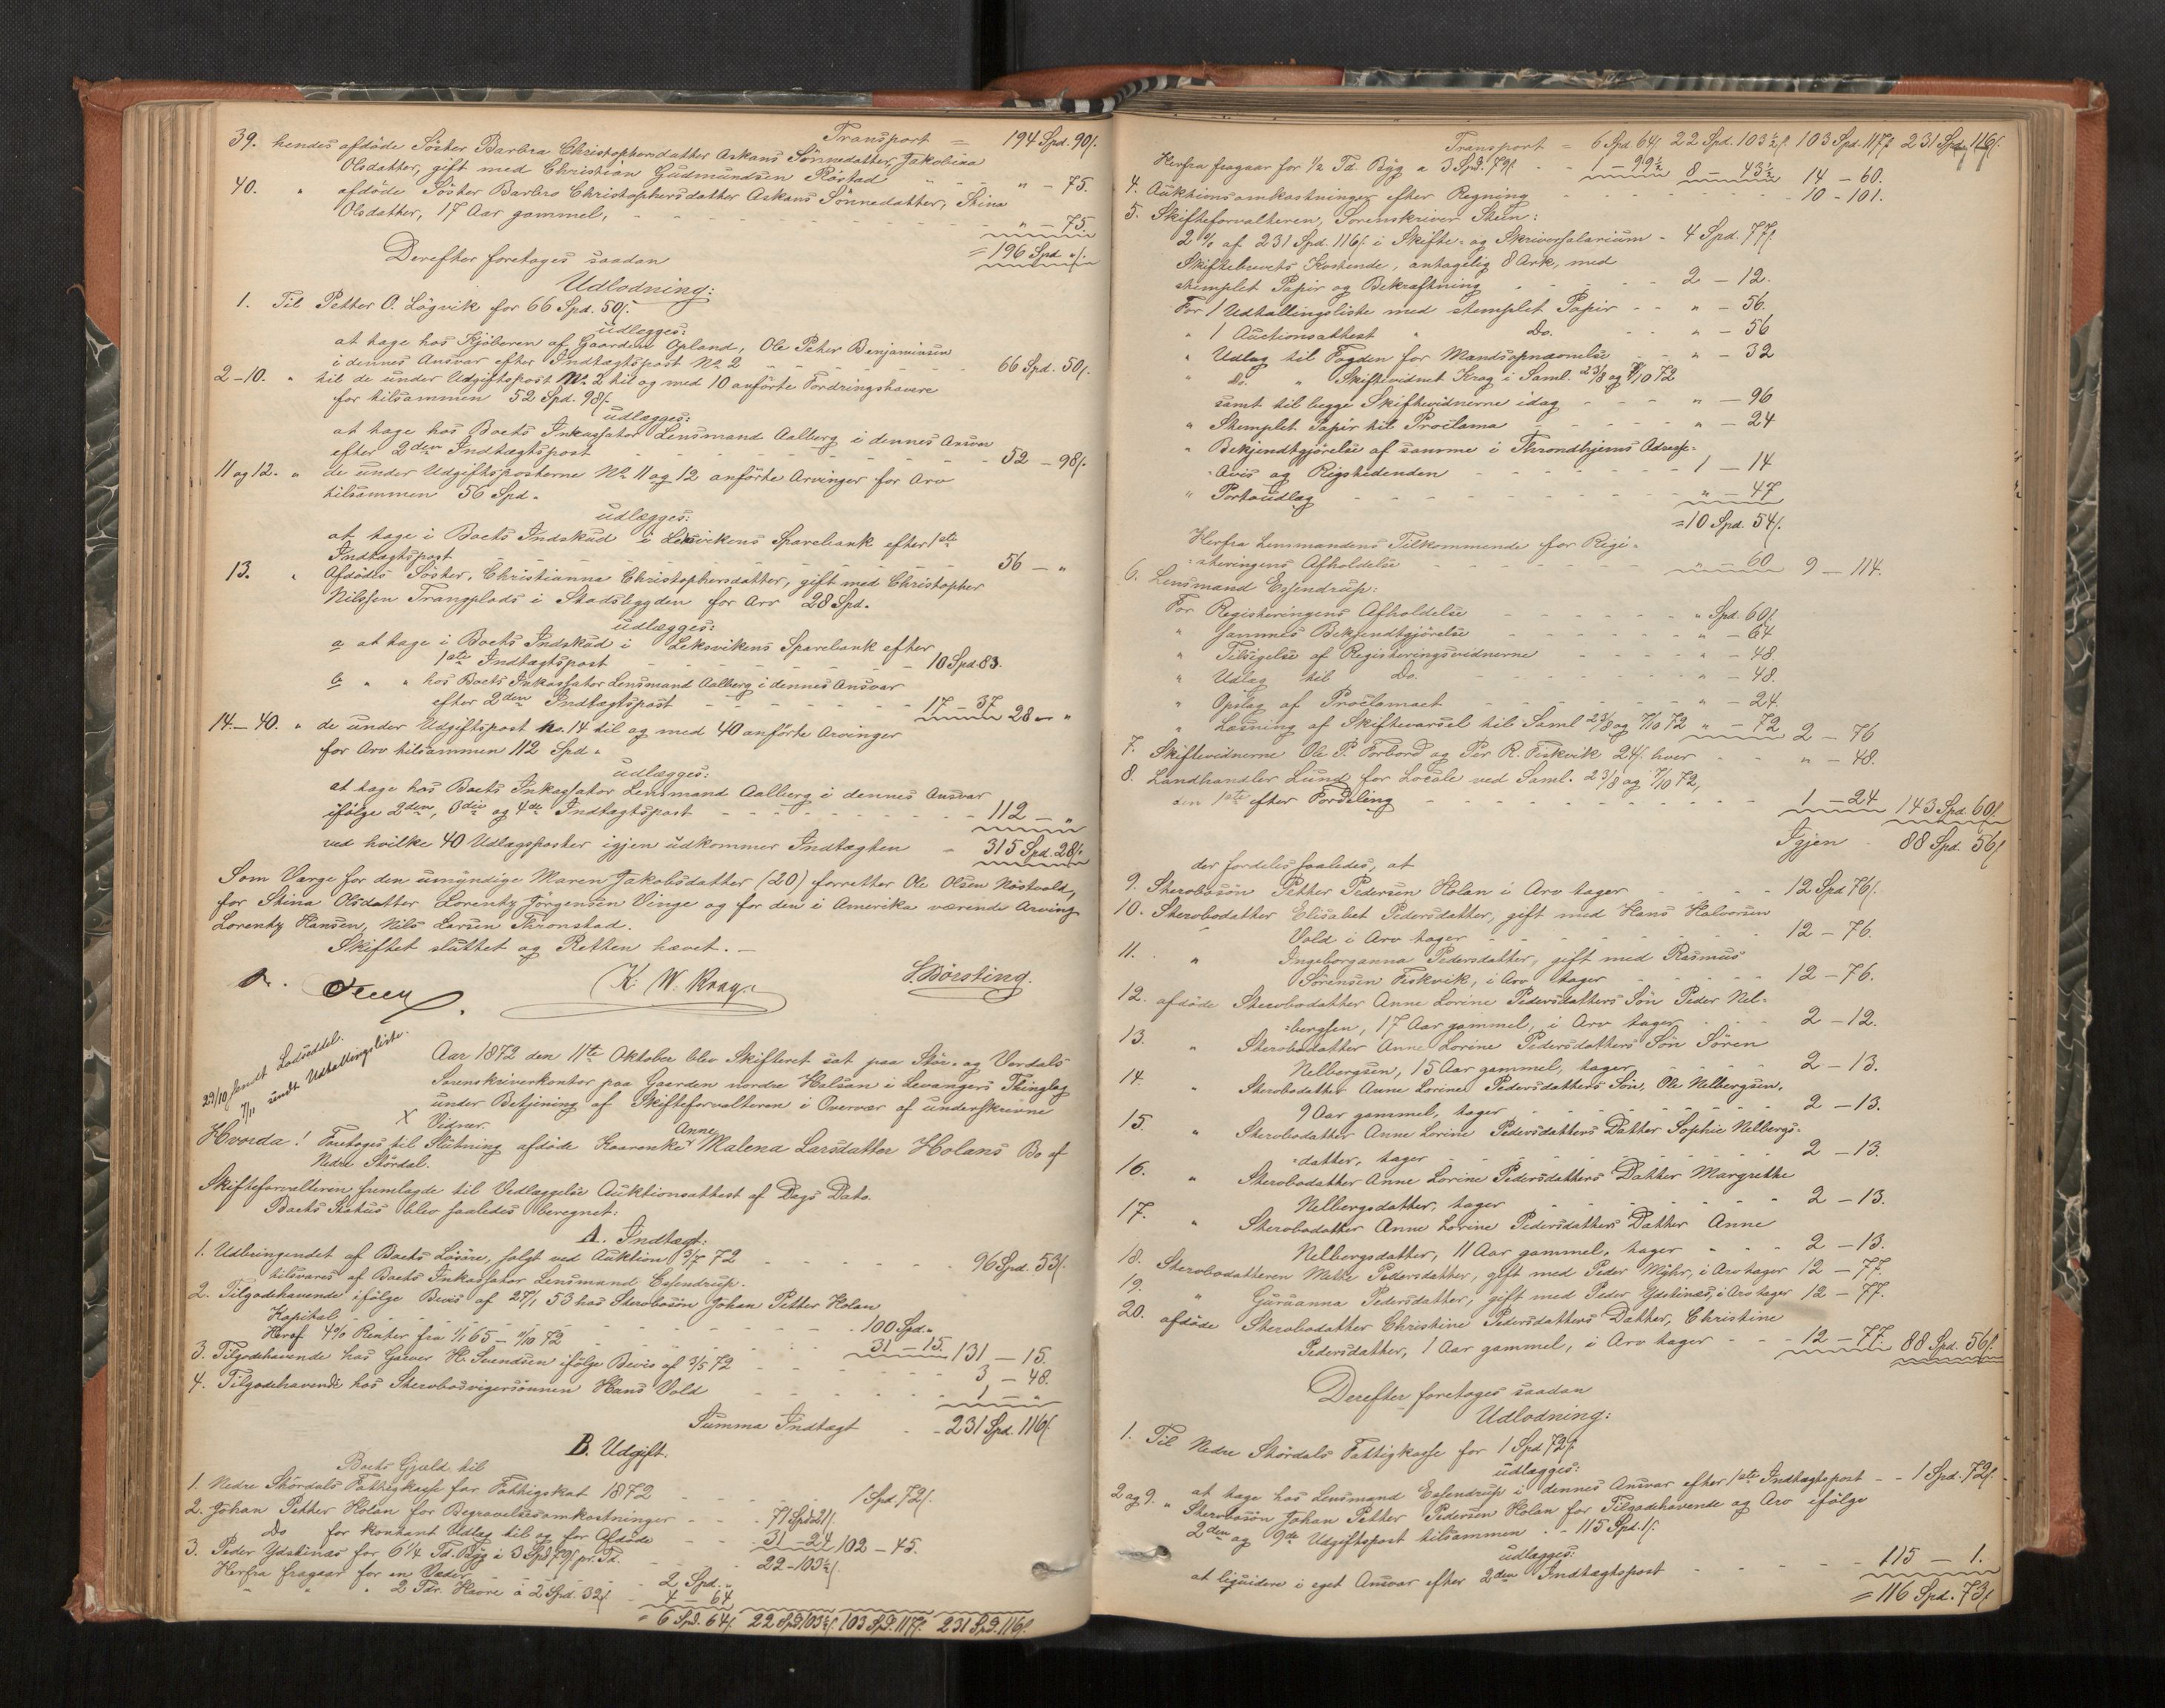 Transport = 194 Spd. 90 ſ.
39. hendes afdøde Søster Barbra Christophersdatter Askans Sønnedatter, Jakobina
Olsdatter, gift med Christian Gudmundsen Røstad " - 75.
40. " afdøde Søster Barbro Christophersdatter Askans Sønnedatter, Stina
Olsdatter, 17 Aar gammel, " - 75.
= 196 Spd. " ſ.
Derefter foretoges saadan
Udlodning:
1. Til Petter O. Løgvik for 66 Spd. 50 ſ.
udlægges:
at tage hos Kjøberen af Gaarden Opland, Ole Peter Benjaminsen
i dennes Ansvar efter Indtægtspost No 2 66 Spd. 50 ſ.
2-10. " til de under Udgiftspost No 2 til og med 10 anførte Fordringshavere
for tilsammen 52 Spd. 98 ſ.
udlægges:
at tage hos Boets Inkassator Lensmand Aalberg i dennes Ansvar
efter 2den Indtægtspost 52 - 98 ſ.
11 og 12. " de under Udgiftsposterne No 11 og 12 anførte Arvinger for Arv
tilsammen 56 Spd.
udlægges:
at tage i Boets Indskud i Leksvikens Sparebank efter 1ste
Indtægtspost 56 - "
13. " Afdødes Søster, Christianna Christophersdatter, gift med Christopher
Nilssen Trangplads i Stadsbygden for Arv 28 Spd.
udlægges:
a at tage i Boets Indskud i Leksvikens Sparebank efter
1ste Indtægtspost 10 Spd 83.
b " " hos Boets Inkassator Lensmand Aalberg i dennes Ansvar
efter 2den Indtægtspost 17 - 37 28 - "
14-40. " de under Udgiftspost No. 14 til og med 40 anførte Arvinger
for Arv tilsammen 112 Spd.
udlægges:
at tage hos Boets Inkassator Lensmand Aalberg i dennes Ansvar
ifølge 2den, 3die og 4de Indtægtspost 112 - "
ved hvilke 40 Udlægsposter igjen udkommer Indtægten - 315 Spd. 28 ſ.
Som Værge for den umyndige Maren Jakobsdatter (20) forretter Ole Olsen Nøstvold,
for Stina Olsdatter Lorentz Jørgensen Vinge og for den i Amerika værende Arving
Lorentz Hansen, Nils Larsen Thronstad.
Skiftet sluttet og Retten hævet. -
K. W. Krag. S. Børsting.
29/10 sendt Lodseddel.
7/11 sendt Udtallingsliste.
Aar 1872 den 11te Oktober blev Skifteret sat paa Stør- og Værdals
Sorenskriverkontor paa Gaarden nordre Halsan i Levangers Thinglag
under Betjening af Skifteforvalteren i Overvær af underskrevne
X Vidner.
Anne
Hvorda! Foretoges til Slutning afdøde Kaarenke Malena Larsdatter Holans Bo af
Nedre Størdal.
Skifteforvalteren fremlagde til Vedlæggelse Auktionsattest af Dags Dato.
Boets Status blev saaledes beregnet:
A. Indtægt:
1. Udbringendet af Boets Løsøre, solgt ved Auktion 3/7 72 96 Spd. 53 ſ.
tilsvares af Boets Inkassator Lensmand Essendrup.
2. Tilgodehavende ifølge Bevis af 27/1 53 hos Stervbosøn Johan Petter Holan
Kapital 100 Spd. "
Heraf 4% Renter fra 1/1 65 - 11/10 72 31 - 15. 131 - 15.
3. Tilgodehavende hos Garver H. Svendsen ifølge Bevis af 3/5 72 3 - 48.
4. Tilgodehavende hos Stervbosvigersønnen Hans Vold 1 - "
Summa Indtægt - 231 Spd. 116 ſ.
B. Udgift.
Boets Gjæld til
1. Nedre Størdals Fattigkasse for Fattigskat 1872 1 Spd. 72 ſ.
2. Johan Petter Holan for Begravelsesomkostninger 71 Spd 21 ſ.
Do for kontant Udlæg til og for Afdøde 31 - 24 102 - 45.
3. Peder Ydstines for 6 1/4 Td. Byg à 3 Spd 79 ſ pr. Td. 22 - 103 1/2 ſ.
Herfra fragaar for en Væder 2 Spd. "
" " " 2 Tdr. Havre à 2 Spd. 32 ſ 4 - 64
= 6 Spd. 64 ſ. 22 Spd. 103 1/2 ſ. 103 Spd. 117 ſ. 231 Spd. 116 ſ.
Transport = 6 Spd 64 ſ. 22 Spd. 103 1/2 ſ. 103 Spd. 117 ſ 231 Spd. 116 ſ.
Herfra fragaar for 1/2 Td. Byg a 3 Spd. 79 ſ 1 - 99 1/2 8 - 43 1/2 14 - 60.
4. Auktionsomkostninger efter Regning 10 - 101.
5. Skifteforvalteren, Sorenskriver Steen:
2 % af 231 Spd. 116 ſ. i Skifte- og Skriversalarium - 4 Spd. 77 ſ.
Skiftebrevets Kostende, antagelig 8 Ark, med
stemplet Papir og Bekræftning 2 - 12.
For 1 Udtallingsliste med stemplet Papir " - 56.
" 1 Auctionsattest " Do. " - 56
" Udlæg til Fogden for Mandsopnævnelse " - 32
" Do. " Skiftevidnet Krag i Saml. 23/8 og 7/10 72
samt til begge Skiftevidnerne idag " - 96
" Stemplet Papir til Proclama " - 24
" Bekjendtgjørelse af samme i Throndhjems Adresse-
-Avis og Rigstidenden 1 - 14
" Portoudlæg " - 47
= 10 Spd. 54 ſ.
Herfra Lensmandens Tilkommende for Regi-
-streringens Afholdelse " - 60 9 - 114.
6. Lensmand Essendrup:
For Registreringens Afholdelse " Spd. 60 ſ
" sammes Bekjendtgjørelse " - 64
" Tilsigelse af Registreringsvidnerne " - 48
" Udlæg til Do. " - 48.
" Opslag af Proclamaet " - 24.
" Læsning af Skiftevarsel til Saml 23/8 og 7/10 72 " - 72 2 - 76
7. Skiftevidnerne Ole P. Forbord og Per R. Fiskvik 24 ſ. hver " - 48.
8. Landhandler Lund for Locale ved Saml. 23/8 og 7/10 72,
den 1ste efter Fordeling 1 - 24 143 Spd. 60 ſ.
Igjen - 88 Spd. 56 ſ
der fordeles saaledes, at
9. Stervbosøn Petter Pedersen Holan i Arv tager 12 Spd 76 ſ.
10. Stervbodatter Elisabet Pedersdatter, gift med Hans Halvorsen
Vold i Arv tager 12 - 76.
11. " Ingeborganna Pedersdatter, gift med Rasmus
Sørensen Fiskvik, i Arv tager 12 - 76.
12. afdøde Stervbodatter Anne Lorine Pedersdatters Søn Peder Nel-
-bergsen, 17 Aar gammel, i Arv tager 2 - 12.
13. " Stervbodatter Anne Lorine Pedersdatters Søn Søren
Nelbergsen, 15 Aar gammel, tager 2 - 13.
14. " Stervbodatter Anne Lorine Pedersdatters Søn, Ole Nelbergsen,
9 Aar gammel, tager 2 - 13.
15. " Stervbodatter Anne Lorine Pedersdatters Datter Sophie Nelbergs-
-datter, tager 2 - 13.
16. " Stervbodatter Anne Lorine Pedersdatters Datter Margrethe
Nelbergsdatter, tager 2 - 13.
17. " Stervbodatter Anne Lorine Pedersdatters Datter Anne
Nelbergsdatter, 11 Aar gammel, tager 2 - 13.
18. Stervbodatteren Mette Pedersdatter, gift med Peder Myhr, i Arv tager 12 - 77.
19. " Guruanna Pedersdatter, gift med Peder Ydstines, i Arv tager 12 - 77.
20. afdøde Stervbodatter Christine Pedersdatters Datter, Christine
Pedersdatter, 1 Aar gammel, i Arv tager 12 - 77. 88 Spd. 56 ſ.
Derefter foretoges saadan
Udlodning:
1. Til Nedre Størdals Fattigkasse for 1 Spd 72 ſ.
udlægges:
at tage hos Lensmand Essendrup i dennes Ansvar efter 1ste Indtægtspost - - 1 Spd. 72 ſ.
2 og 9. " Stervbosøn Johan Petter Pedersen Holan for Tilgodehavende og Arv ifølge
2den og 9de Udgiftspost tilsammen - - 115 Spd. 1 ſ.
udlægges:
at liquidere i eget Ansvar efter 2den Indtægtspost 115 - 1.
= 116 Spd. 73 ſ